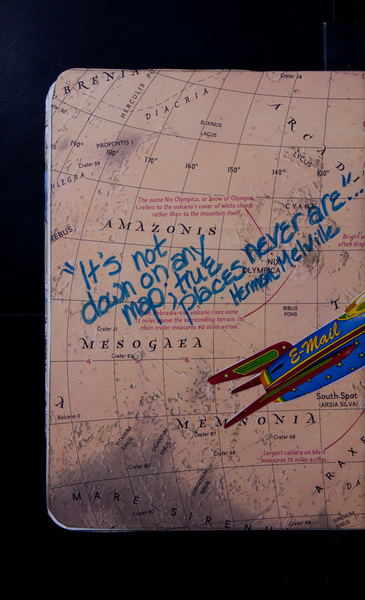 BRENIA
HERCULIS
DIACRIA
Crater 24
EUXINUS
LACUS
ARCAD
LYCUS
PROPONTIS I
190°
180°
170°
160°
150°
140°
130°
Crater 59
PHLEGRA
The name Nix Olympica, or Snow of Olympus,
refers to the volcano's cover of white clouds
rather than to the mountain itself.
CYANE
EREBUS
AMAZONIS
Bright
often drap
"It's not
down on any
map; true
places never are"...
Herman Melville
NIX
OLYMPICA
Nebraska-size volcano rises some
15 miles above the surrounding terrain. Its
main crater measures 40 miles across.
BIBLIS
FONS
Crater 21
MESOGAEA
4
5
6
7
E-Mail
Volcano II
South Spot
(ARSIA SILVA)
MEMNONIA
Crater 87
Crater 68
TITANUM
SINUS
GIGANTUM
SINUS
Largest caldera on Mars
measures 75 miles across.
GORGONUM
SINUS
ARAXE
MARE SIREN
Crater 40
Crater 48
SIRENUM
SINUS